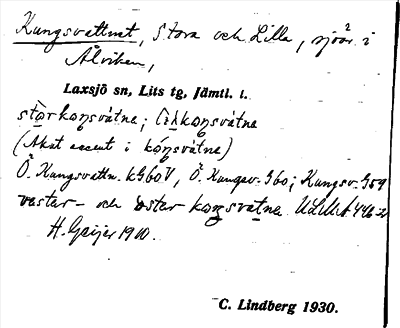 Kungsvattnet, Stora och Lilla, sjöar i
Ålviken,
Laxsjö sn, Lits tg, Jämtl. l.
stórkoŋsvátne; koŋsvátne
(Akut accent i kóŋsvátne)
Ö. Kungsvattn. KG60V, Ö. Kungsv. G60; Kungsv. G59
vestar- och østar koŋsvatne
H. Geijer 1910.
C. Lindberg 1930.